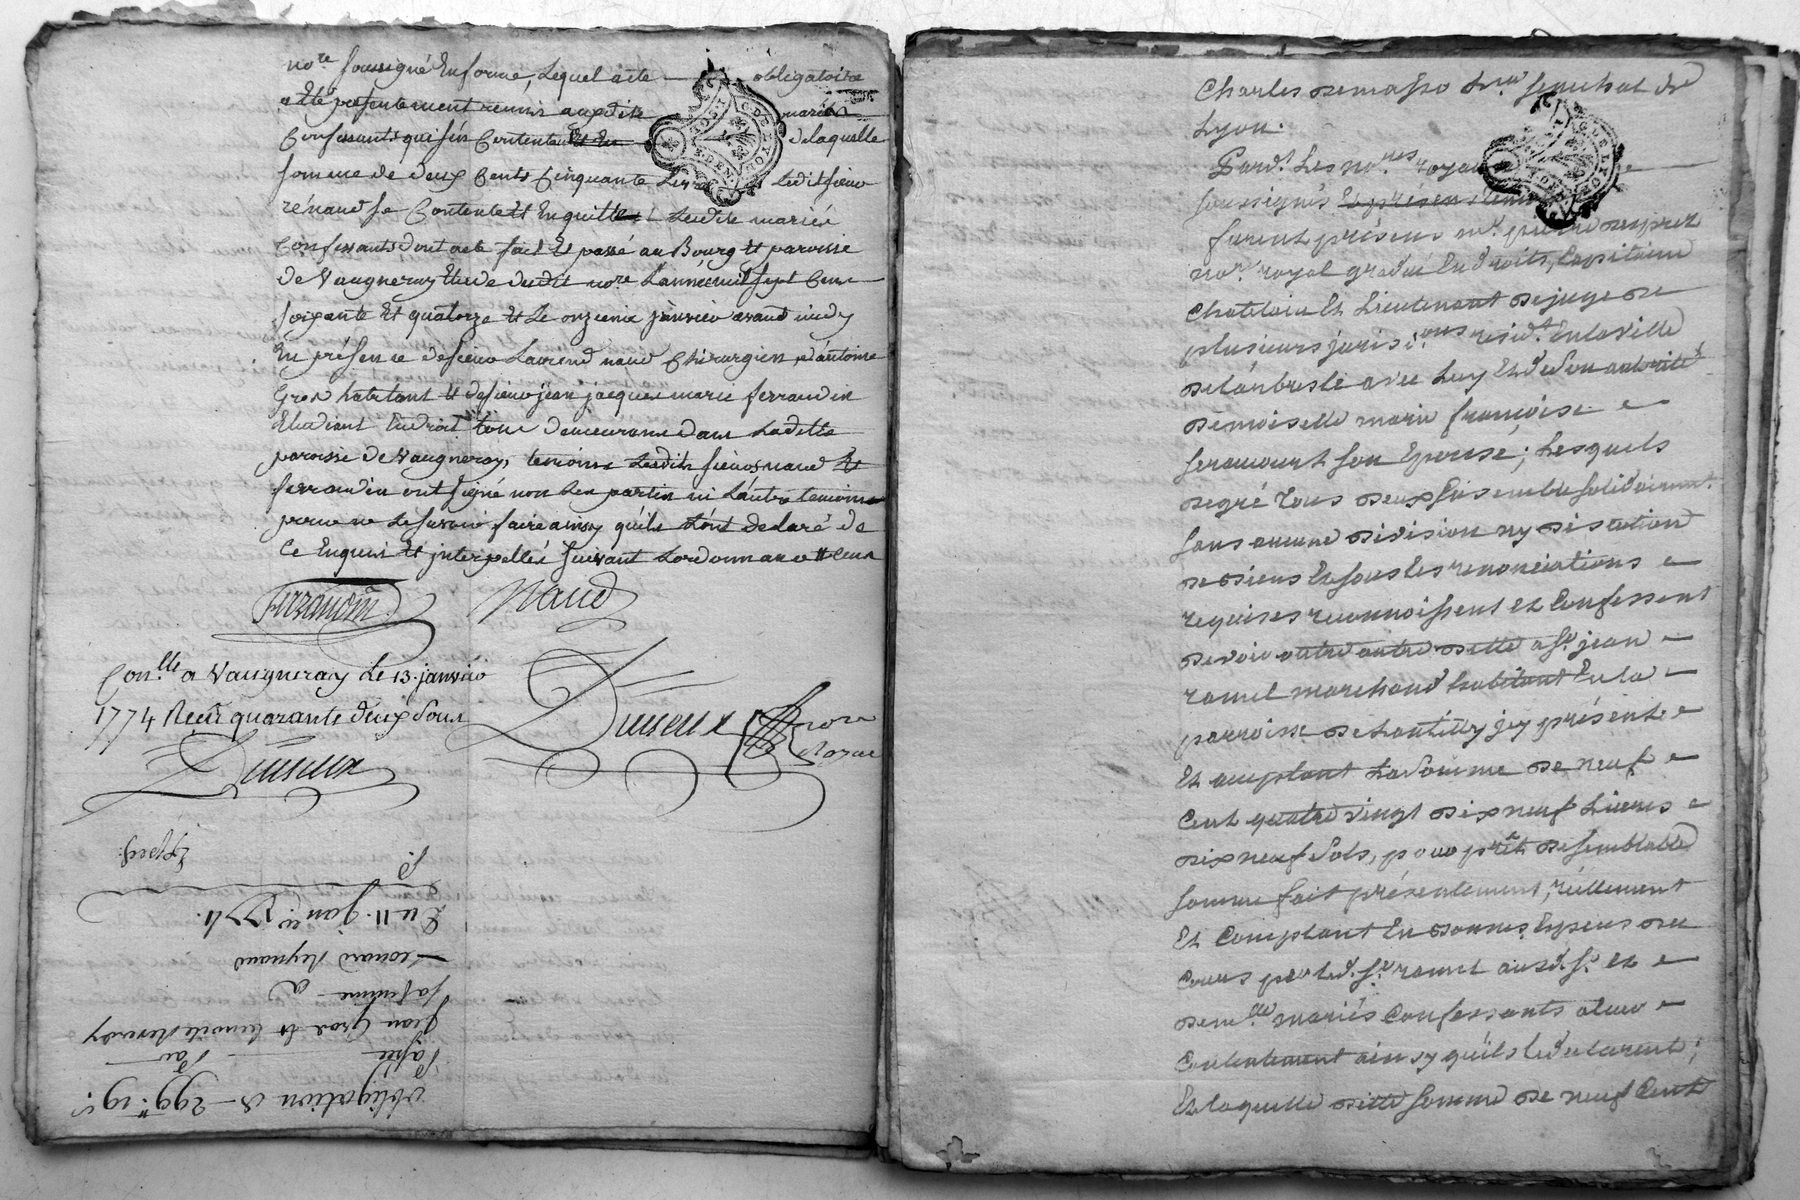 no.re soussigné En forme, Lequel acte obligatoire
a Eté présentement remis auxdits mariés
Confessants qui s'en Contentent de laquelle
somme de deux Cents Cinquante Livres Ledit sieur
rénaud se Contente Et En quitte Lesdits mariés
Confessants dont acte fait Et passé au Bourg Et paroisse
de Vaugneray Etude dudit no.re L'année mil sept Cens
soixante Et quatorze Et Le onzieme janvier avant midy
En présence de sieur Laurend naud Chirurgien, d'antoine
Gros habitant Et de sieur jean jacques marie ferrandin
Etudiant En droit tous demeurans dans Laditte
paroisse de Vaugneray, temoins Lesdits sieurs naud Et
ferrandin ont signé non Les parties ni L'autre temoin
pour ne Le savoir faire ainsy qu'ils L'ont declaré de
Ce Enquis Et interpellés suivant L'ordonnance
Ferrandin Naud
Con.lle a Vaugneray Le 13. janvier
1774 Reçu quarante deux sous
no.re
Royal
Expéd:
Du 11. jan.er 1774.
Leonard Reynaud
sa femme a
jean Gros Et
Passée Par
obligation de 299.# 19.s
Charles demasso senechal de
Lyon.
Pard.t Les no.res royaux
soussignés
furent présens m.e pierre
no.re royal gradué En droits, Capitaine
Chatelain Et Lieutenant de juge de
plusieurs jurisd.ons resid.t En la ville
de L'arbresle avec Luy Et de son autorité
demoiselle marie françoise
feraucourt son Epouse; Lesquels
de gré tous deux Ensemble solidairem.t
sans aucune division ny distation
de biens Et sous Les renonciations
requises reconnoissent Et Confessent
devoir a s.r jean
ramel marchand habitant En la
parroisse de Lentilly jcy présent
Et acceptant La somme de neuf
Cent quatre vingt dix neuf Livres
dix neuf sols, pour prêt de semblable
somme fait présentement, réellement
Et Comptant En bonnes Especes du
Cours par led. s.r ramel ausd. s.r Et
dem.lle mariés Confessants a leur
Contentement ainsy qu'ils le declarent;
Et laquelle ditte somme de neuf Cent